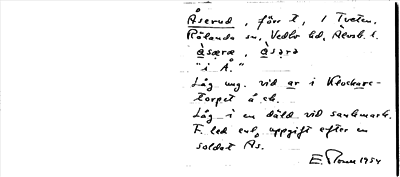 Åserud, förr t, 1 Tveten,
Rölanda sn, Vedbo hd, Älvsb. l.
àsæræ, àsærə
"i Å."
Låg ung. vid ar i Klockare-
torpet å ek.
Låg i en däld vid sankmark.
F. led enl. uppgift efter en
soldat Ås.
1954